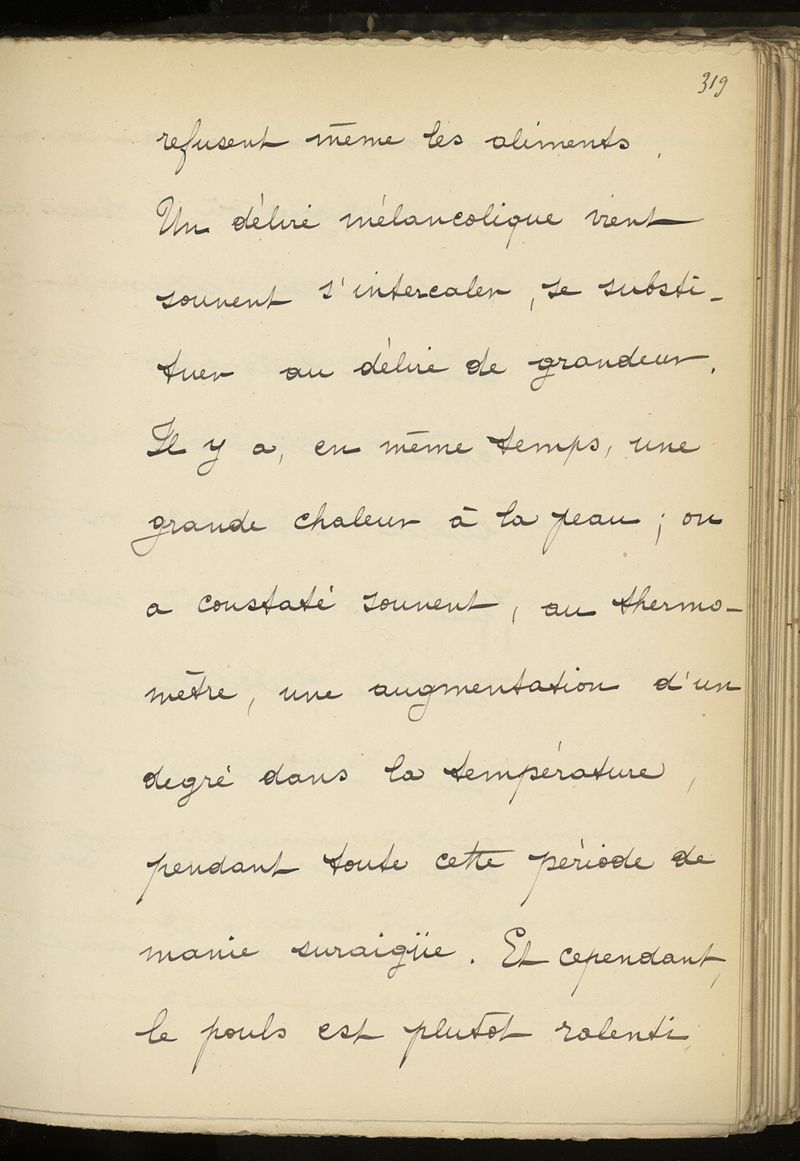 319
refusent même les aliments.
Un délire mélancolique vient
souvent s'intercaler, se substi-
tuer au délire de grandeur.
Il y a, en même temps, une
grande chaleur à la peau ; on
a constaté souvent, au thermo-
mètre, une augmentation d'un
degré dans la température,
pendant toute cette période de
manie suraigüe. Et cependant,
le pouls est plutôt ralenti